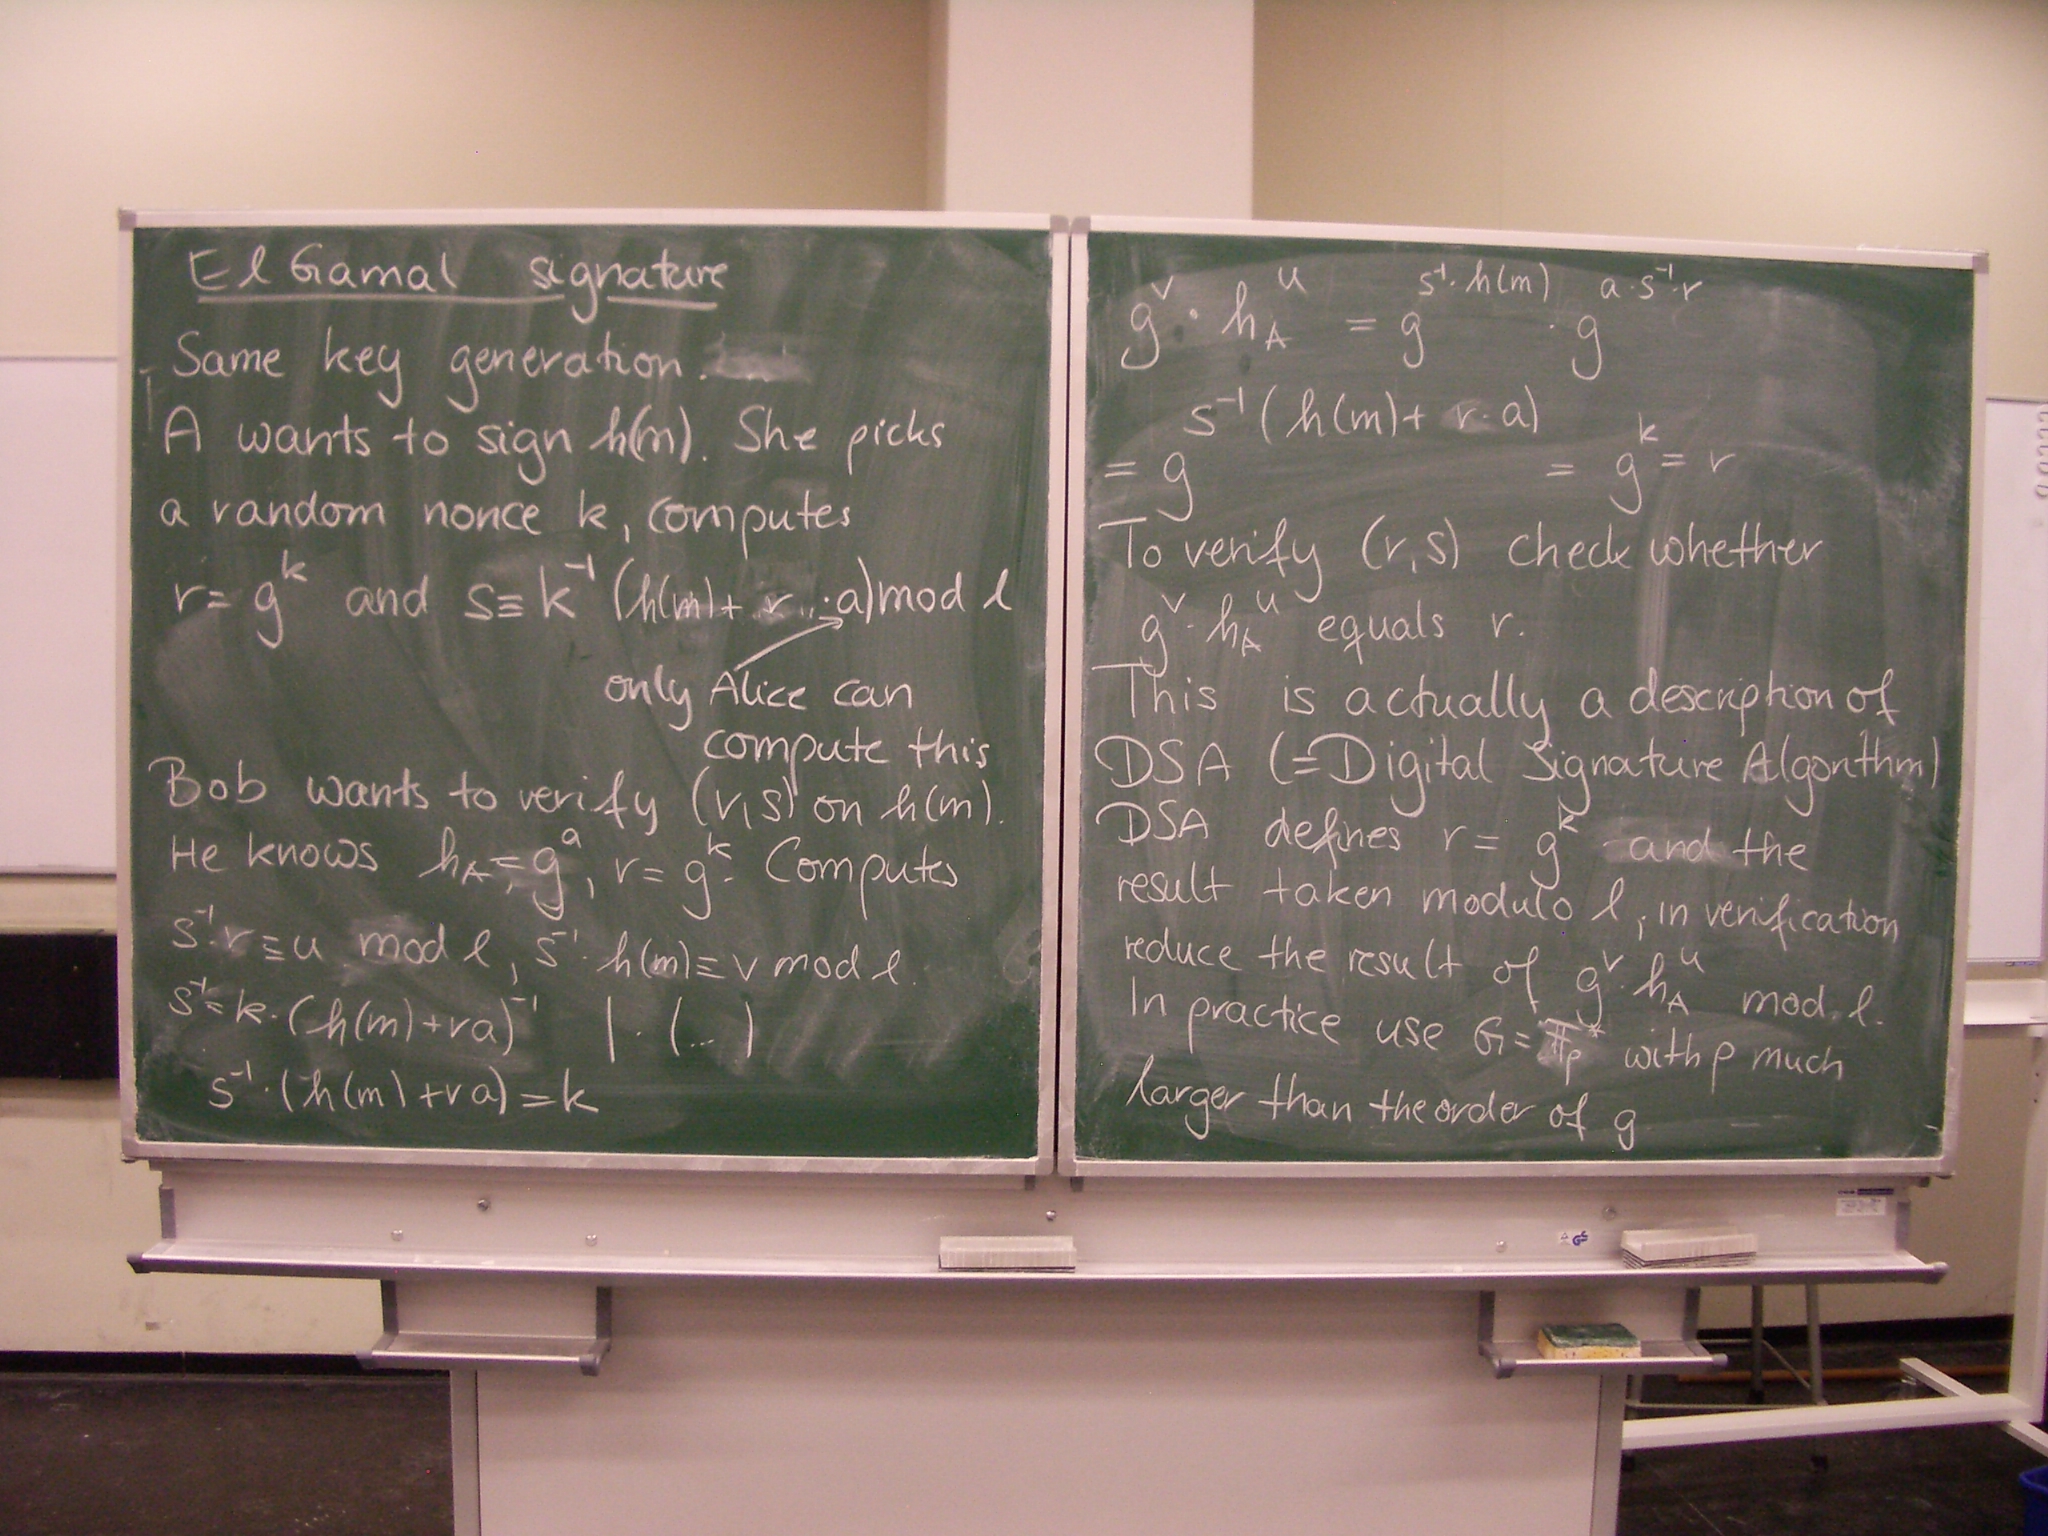 El Gamal signature
Same key generation.
A wants to sign h(m). She picks
a random nonce k, computes
r = g^k and s ≡ k^-1 (h(m) + r · a) mod l
only Alice can
compute this
Bob wants to verify (r,s) on h(m).
He knows h_A = g^a, r = g^k. Computes
s^-1 · r ≡ u mod l, s^-1 · h(m) ≡ v mod l.
s^-1 = k · (h(m) + ra)^-1 | · (...)
s^-1 · (h(m) + ra) = k
g^v · h_A^u = g^(s^-1 · h(m)) · g^(a · s^-1 · r)
= g^(s^-1 (h(m) + r · a)) = g^k = r
To verify (r,s) check whether
g^v · h_A^u equals r.
This is actually a description of
DSA (= Digital Signature Algorithm)
DSA defines r = g^k and the
result taken modulo l, in verification
reduce the result of g^v · h_A^u mod l.
In practice use G = 𝔽_p^* with p much
larger than the order of g